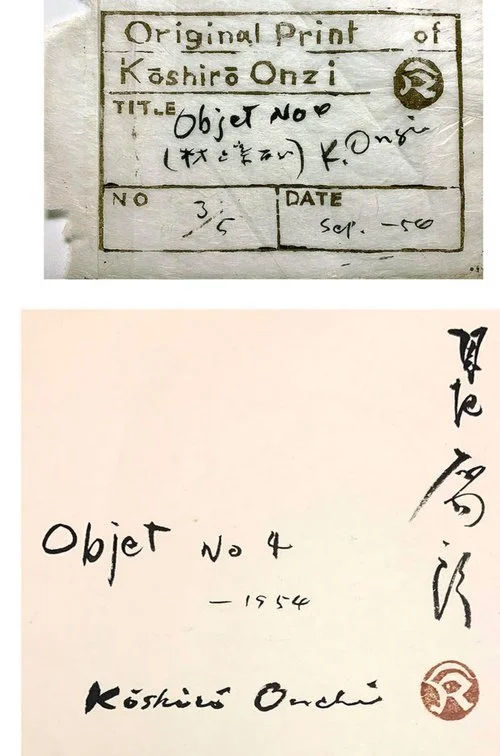 Original Print of
Kōshirō Onzi
TITLE Objet No
K. Onzi
NO 3/5 DATE Sep. -50
Objet No 4
-1954
Kōshirō Onchi